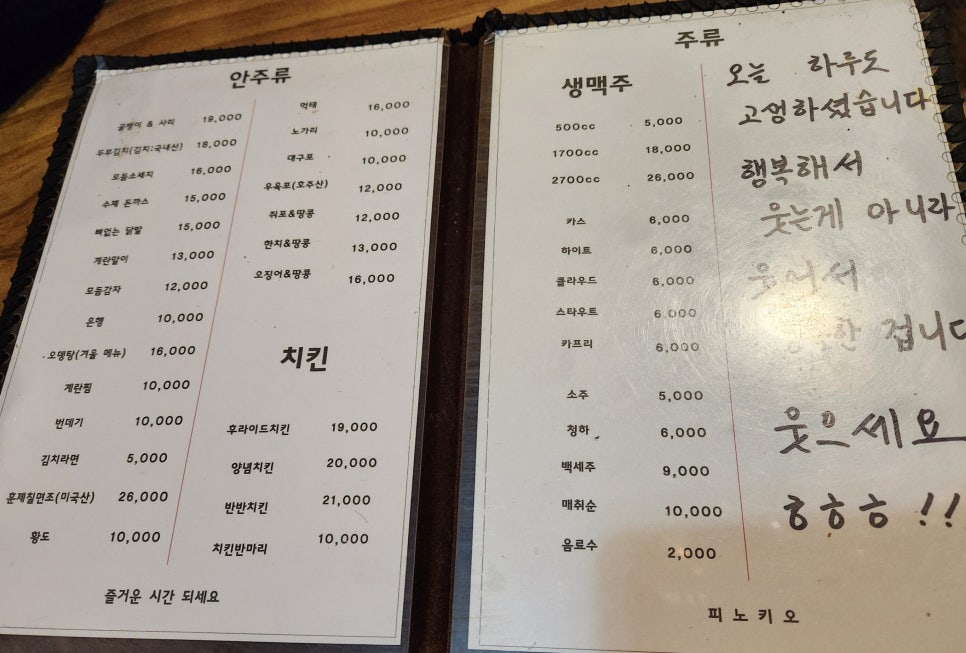 안주류
골뱅이 & 사리 19,000
두부김치(김치:국내산) 18,000
모듬소세지 16,000
수제 돈까스 15,000
뼈없는 닭발 15,000
계란말이 13,000
모듬감자 12,000
은행 10,000
오뎅탕(겨울 메뉴) 16,000
계란찜 10,000
번데기 10,000
김치라면 5,000
훈제칠면조(미국산) 26,000
황도 10,000
먹태 16,000
노가리 10,000
대구포 10,000
우육포(호주산) 12,000
쥐포&땅콩 12,000
한치&땅콩 13,000
오징어&땅콩 16,000
치킨
후라이드치킨 19,000
양념치킨 20,000
반반치킨 21,000
치킨반마리 10,000
즐거운 시간 되세요
주류
생맥주
500cc 5,000
1700cc 18,000
2700cc 26,000
카스 6,000
하이트 6,000
클라우드 6,000
스타우트 6,000
카프리 6,000
소주 5,000
청하 6,000
백세주 9,000
매취순 10,000
음료수 2,000
오늘 하루도
고생하셨습니다
행복해서
웃는게 아니라
웃어서
겁니다
웃으세요
ㅎㅎㅎ !!
피노키오